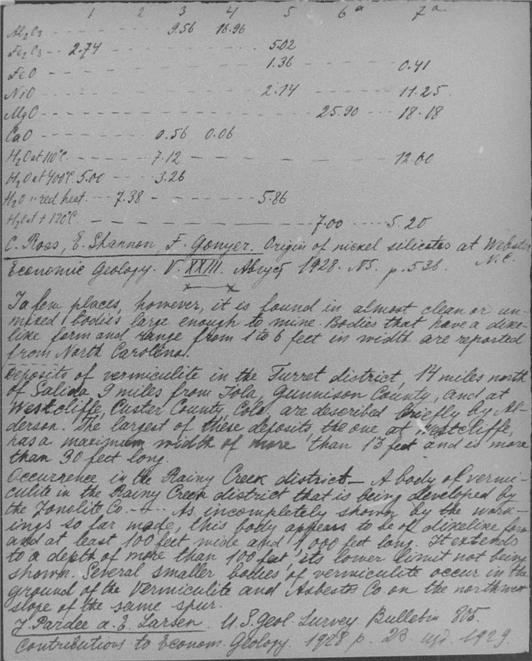 1 2 3 4 5 6ª 7ª
Al2O3 - - - - - - - - 9.56 16.96
Fe2O3 - 2.74 - - - - - - - - 5.02
FeO - - - - - - - - 1.36 - - - - 0.41
NiO - - - - - - - - 2.14 - - - - 11.25
MgO - - - - - - - - - - 25.90 - - - 18.18
CaO - - - - - 0.56 0.06
H2O at 110°C - - - - 7.12 - - - - - - - 12.60
H2O at 400°C 5.00 - - - 3.26
H2O " red heat - - 7.38 - - - - - 5.86
H2O at + 120°C - - - - - - - - - 7.00 - - - - 5.20
C. Ross, E. Shannon, F. Gonyer. Origin of nickel silicates at Webster N.C.
Economic Geology. V. XXIII. Август 1928. N5. p. 536.
few places, however, it is found in almost clean or un-
mixed bodies large enough to mine. Bodies that have a dike-
like form and range from 1 to 6 feet in width are reported
from North Carolina.
Deposits of vermiculite in the Turret district, 14 miles north
of Salida 9 miles from Iola Gunnison County, and at
Westcliffe, Custer County, Colo, are described briefly by Al-
derson. The largest of these deposits the one at Westcliffe,
has a maximum width of more than 13 feet and is more
than 90 feet long.
Occurrence in the Rainy Creek district - A body of vermi-
culite in the Rainy Creek district that is being developed by
the Zonolite Co. - - - As incompletely shown by the work-
ings so far made, this body appears to be of dikelike form
and at least 100 feet wide and 1,000 feet long. It extends
to a depth of more than 100 feet, its lower limit not being
shown. Several smaller bodies of vermiculite occur in the
ground of the Vermiculite and Asbestos Co on the northwest
slope of the same spur.
J. Pardee a. E. Larsen. U.S. Geol Survey Bulletin 805.
Contributions to Econom. Geology. 1928 p. 23 изд. 1929.